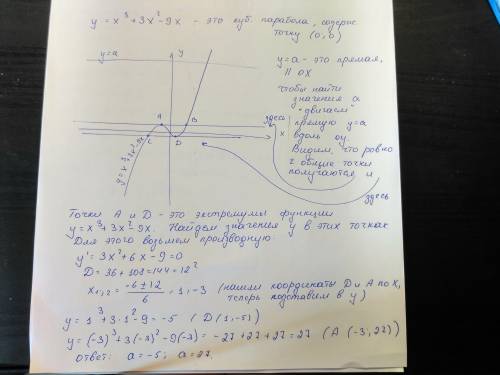 y = x³ + 3x² - 9x - это куб. парабола, содерж.
точку (0,0)
y=a
y
y=a - это прямая,
|| ox
чтобы найти
значения a
"двигаем"
прямую y=a
вдоль oy.
Видим, что ровно
2 общие точки
получаются и
здесь
здесь
A
B
x
C
D
y=x³+3x²-9x
Точки A и D - это экстремумы функции
y=x³+3x²-9x. Найдем значения y в этих точках
Для этого возьмем производную:
y' = 3x²+6x-9=0
D = 36+108=144=12²
x₁,₂ = -6±12/6 = 1; -3 (нашли координаты D и A по X,
теперь подставим в y)
y = 1³+3·1²-9 = -5 (D(1;-5))
y = (-3)³+3(-3)²-9(-3) = -27+27+27=27 (A(-3;27))
ответ: a=-5; a=27.